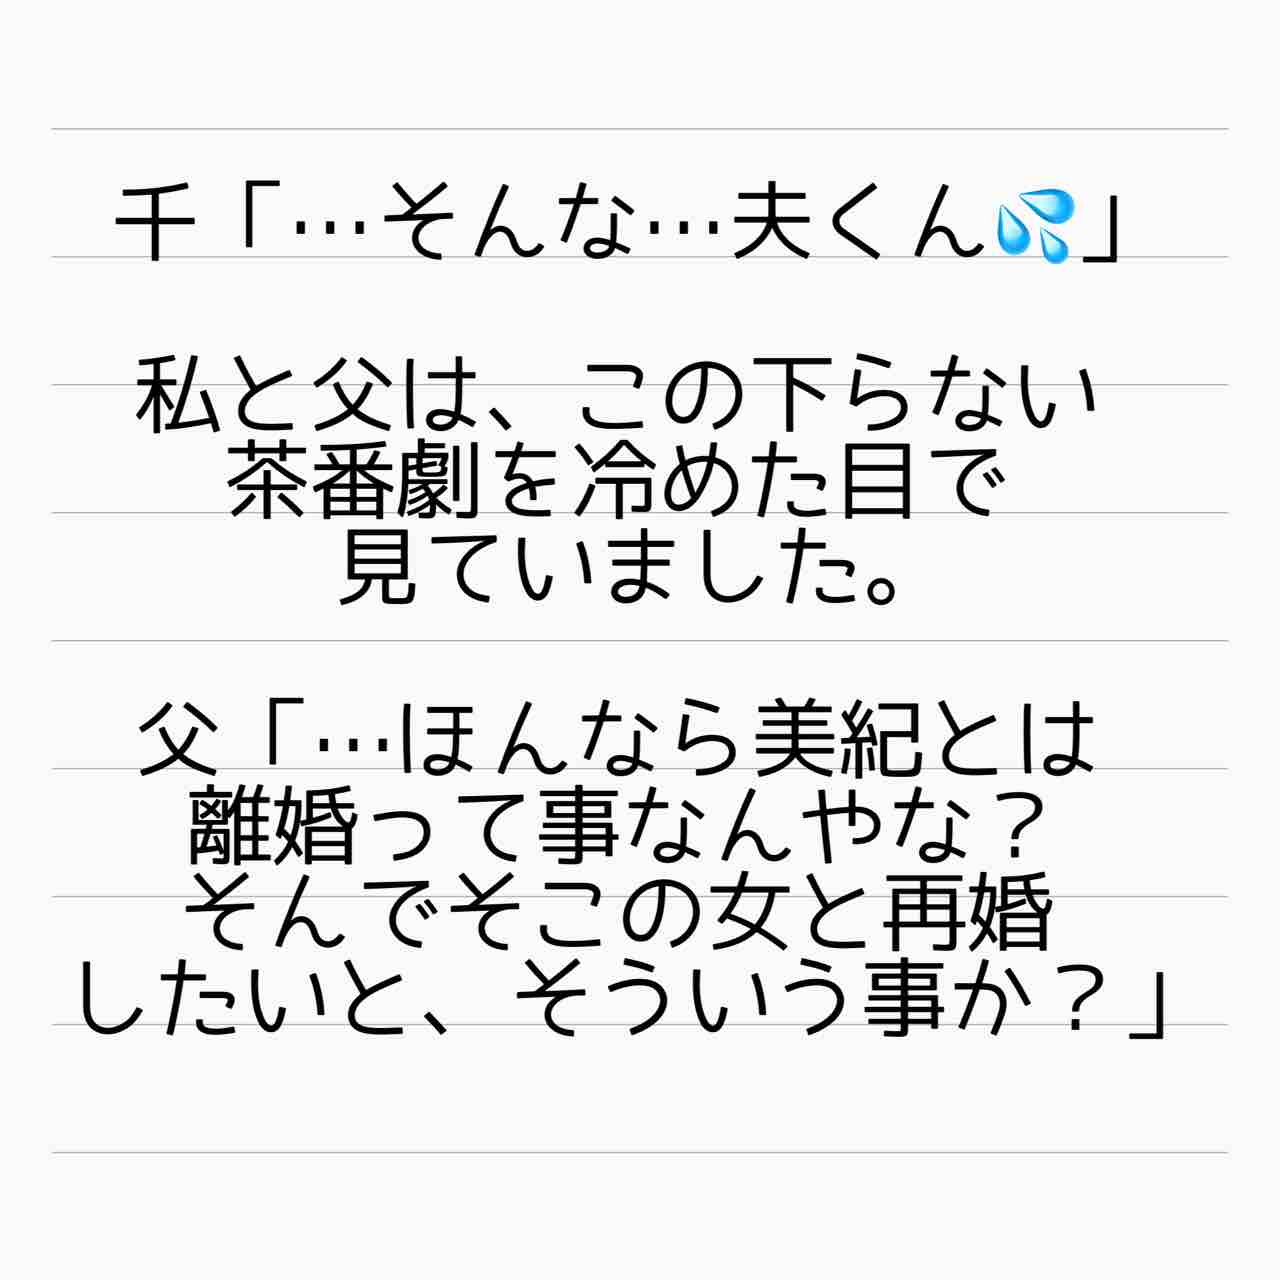 千「…そんな…夫くん💦」
私と父は、この下らない
茶番劇を冷めた目で
見ていました。
父「…ほんなら美紀とは
離婚って事なんやな？
そんでそこの女と再婚
したいと、そういう事か？」